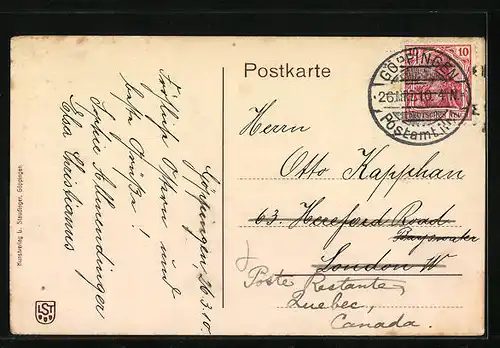 Postkarte
GÖPPINGEN
26
10 4-N.
Postamt
10
Herrn
Otto Kapphan
63. Hereford Road
Bayswater
London W
Poste Restante,
Quebec,
Canada.
Göppingen 26.3.10.
Fröhliche Ostern und
beste Grüße!
Sofie Allmendinger
Elsa Christianus
Kunstverlag L. Staudinger, Göppingen
LST